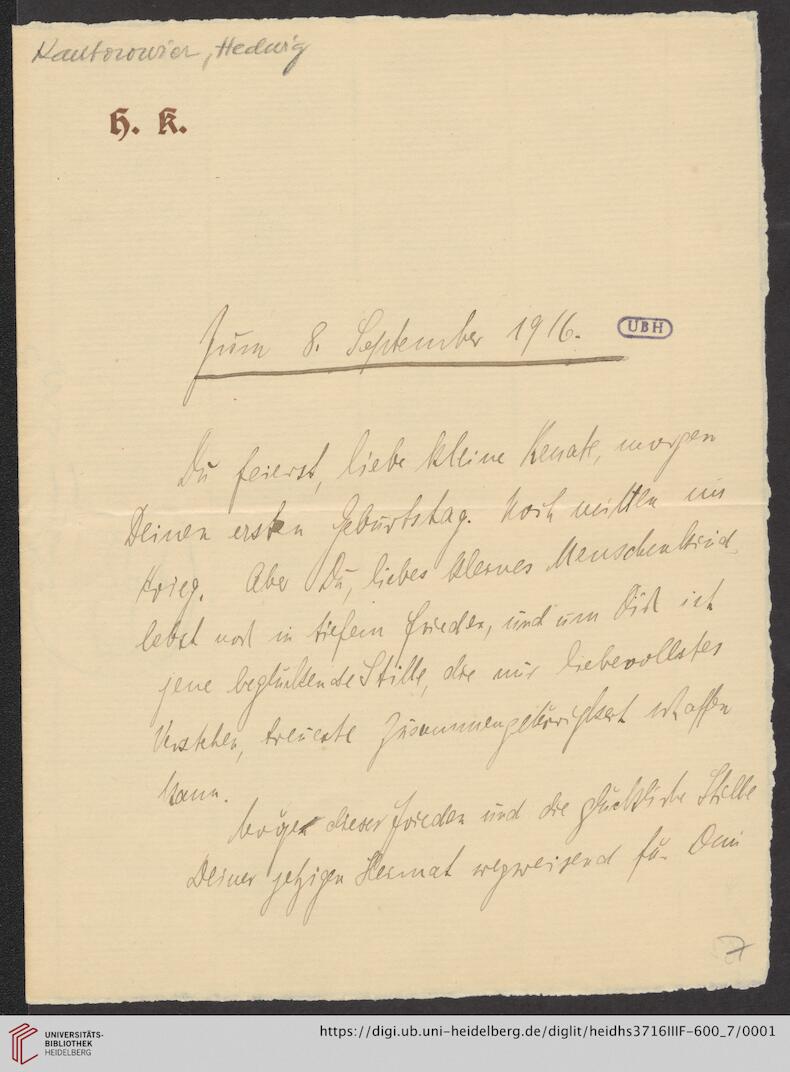 Kantorowicz, Hedwig
H. K.
Zum 8. September 1916.
UBH
Du feierst, liebe kleine Renate, morgen
Deinen ersten Geburtstag. Noch mitten im
Krieg. Aber Du, liebes kleines Menschenkind,
lebst noch in tiefem Frieden, und um Dich ist
jene beglückende Stille, die nur liebevollstes
Verstehen, treueste Zusammengehörigkeit schaffen
kann.
Mögen dieser Frieden und die glückliche Stille
Deiner jetzigen Heimat wegweisend für Dein
7
UNIVERSITÄTS-
BIBLIOTHEK
HEIDELBERG
https://digi.ub.uni-heidelberg.de/diglit/heidhs3716IIIF-600_7/0001